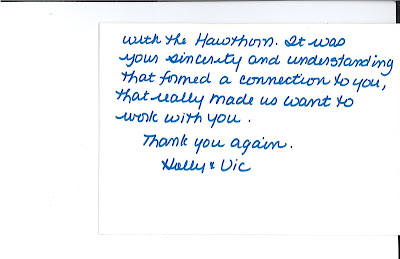 with the Hawthorn. It was
your sincerity and understanding
that formed a connection to you,
that really made us want to
work with you.
Thank you again.
Holly & Vic